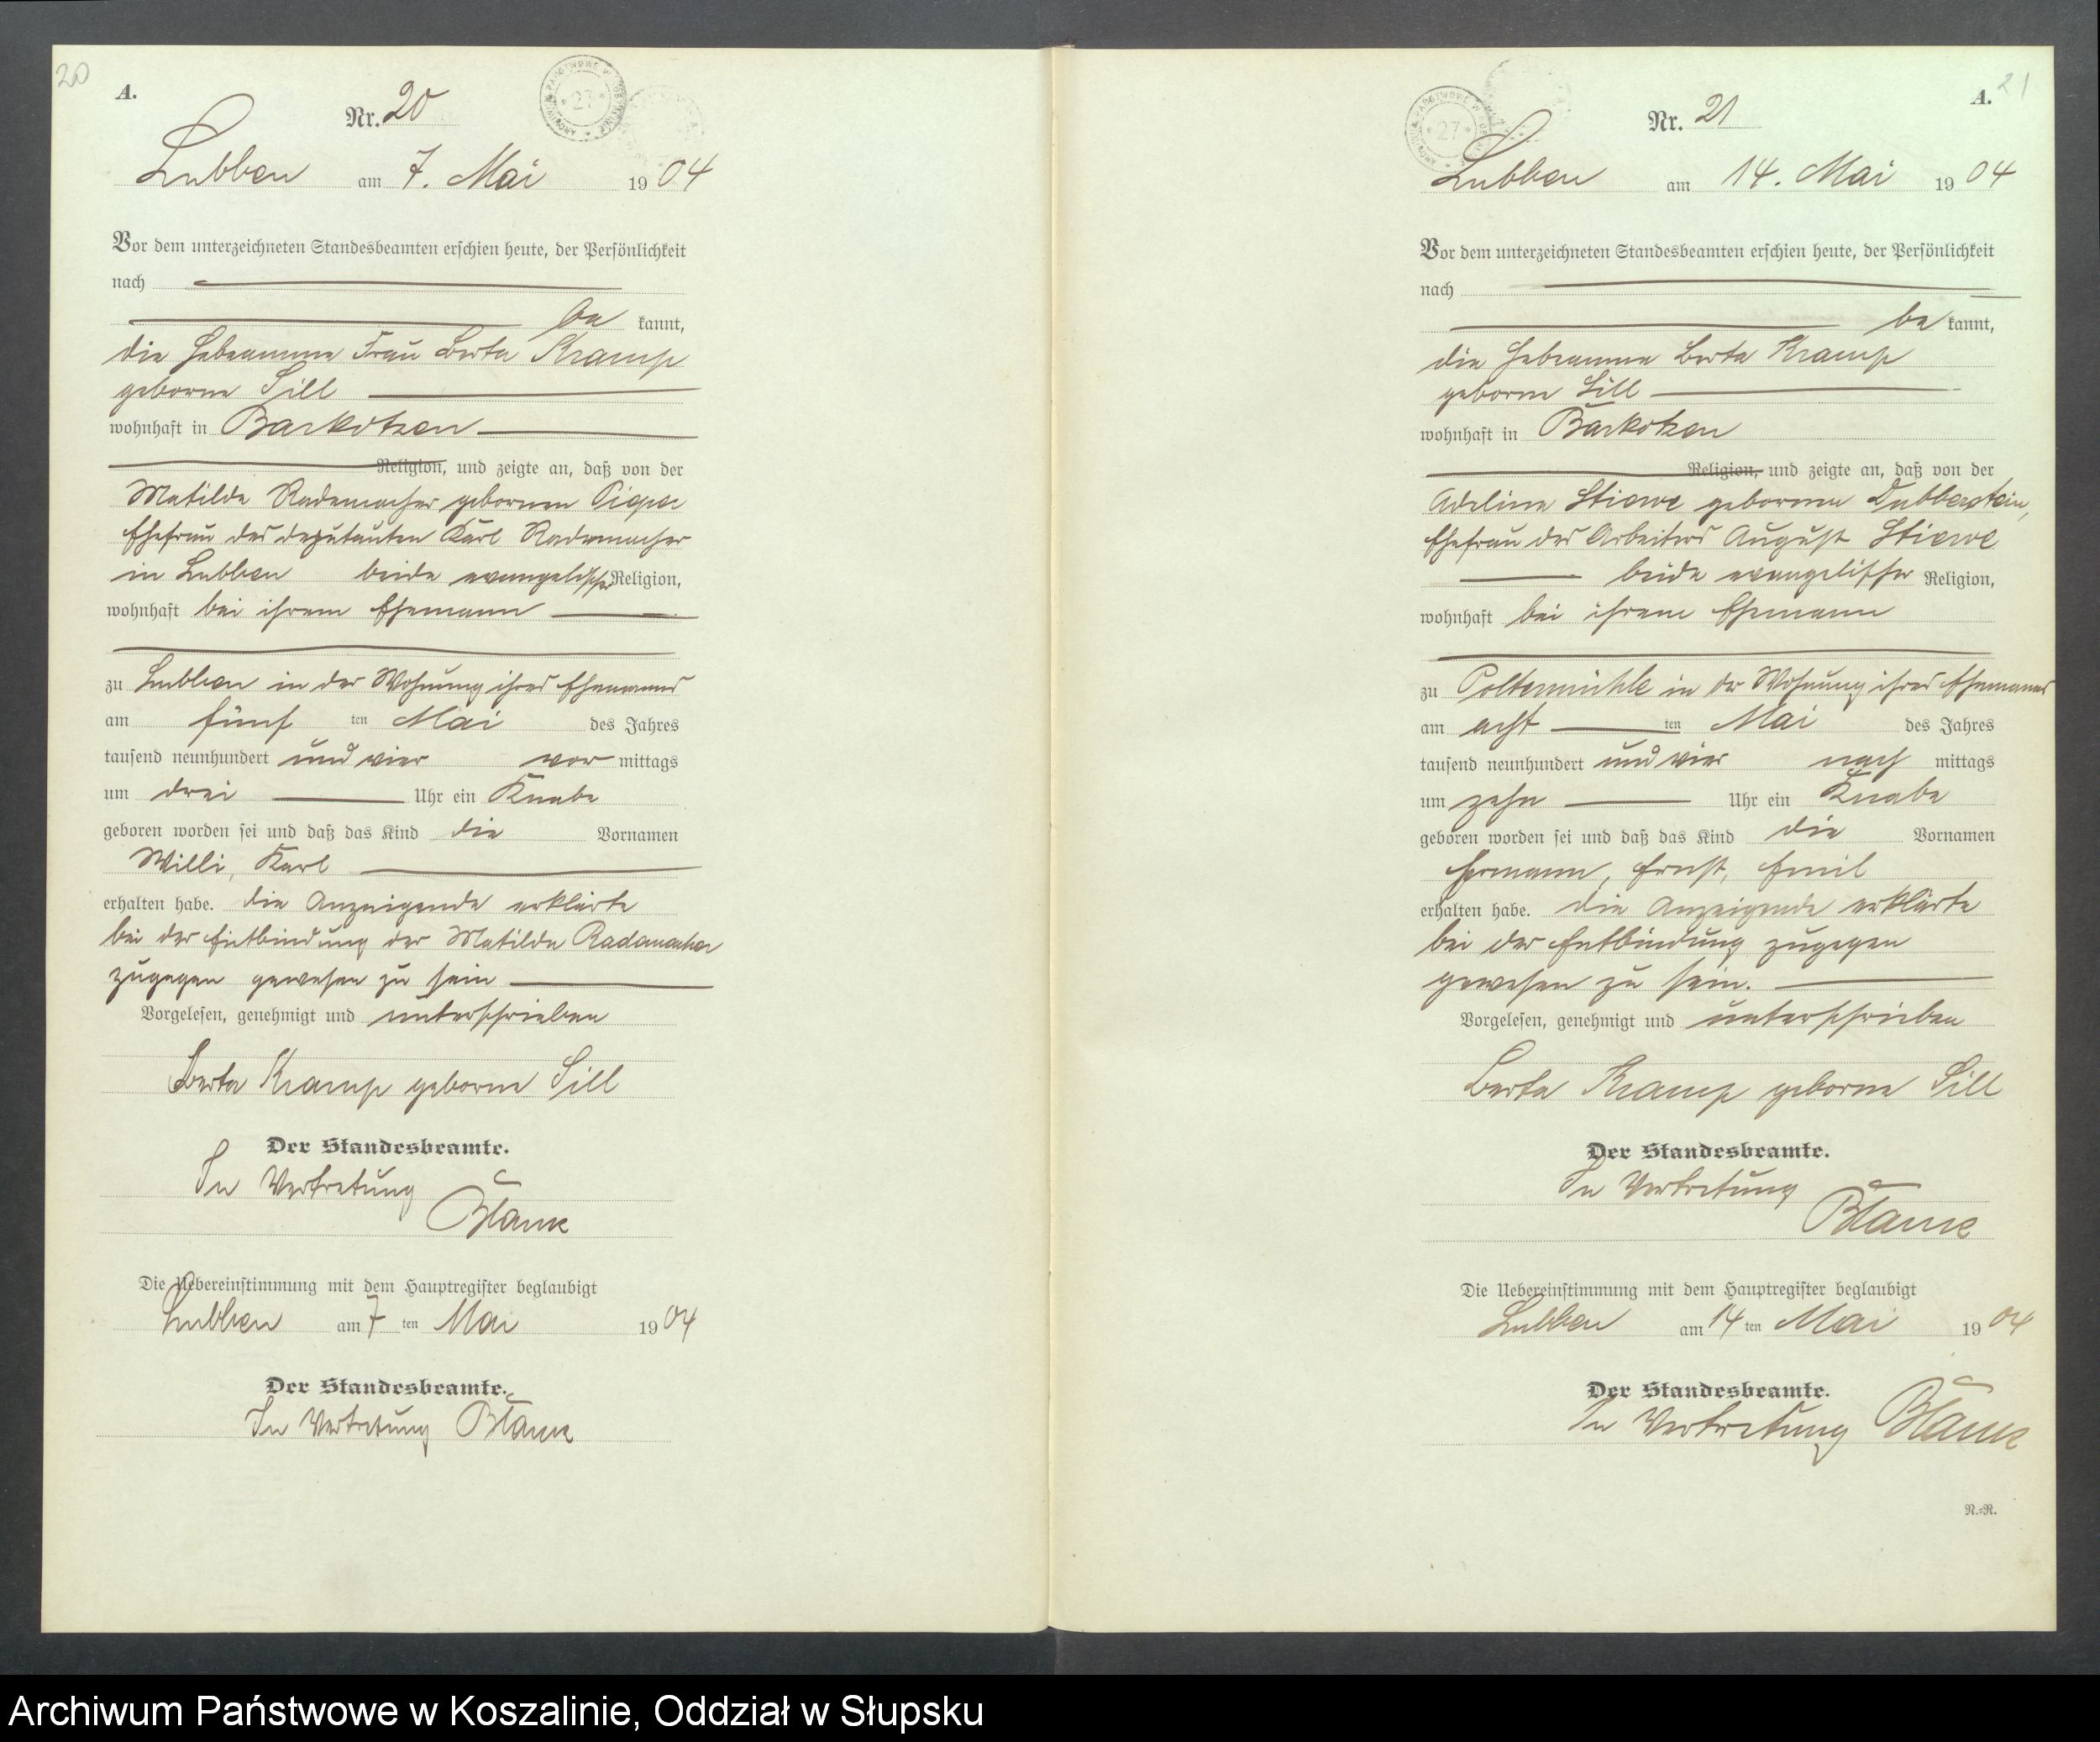 20
A.
Nr. 20
Lübben am 7. Mai 1904
Vor dem unterzeichneten Standesbeamten erschien heute, der Persönlichkeit
nach
be kannt,
die Hebeamme Frau Berta Kramp
geborne Sill
wohnhaft in Barkotzen
Religion, und zeigte an, daß von der
Matilde Rademacher gebornen Piepe
Ehefrau des deputanten Karl Rademacher
in Lubben beide evangelischer Religion,
wohnhaft bei ihrem Ehemann
zu Lubben in der Wohnung ihres Ehemannes
am fünf ten Mai des Jahres
tausend neunhundert und vier vor mittags
um drei Uhr ein Knabe
geboren worden sei und daß das Kind die Vornamen
Willi, Karl
erhalten habe. die Anzeigende erklärte
bei der Entbindung der Matilde Rademacher
zugegen gewesen zu sein
Vorgelesen, genehmigt und unterschrieben
Berta Kramp geborne Sill
Der Standesbeamte.
In Vertretung
Die Uebereinstimmung mit dem Hauptregister beglaubigt
Lubben am 7 ten Mai 1904
Der Standesbeamte.
In Vertretung
21
A.
Nr. 21
Lubben am 14. Mai 1904
Vor dem unterzeichneten Standesbeamten erschien heute, der Persönlichkeit
nach
be kannt,
die Hebamme Berta Kramp
geborne Sill
wohnhaft in Barkotzen
Religion, und zeigte an, daß von der
Adeline Stiewe gebornen Dubberstein,
Ehefrau des Arbeiters August Stiewe
beide evangelischer Religion,
wohnhaft bei ihrem Ehemann
zu Poltermühle in der Wohnung ihres Ehemannes
am acht ten Mai des Jahres
tausend neunhundert und vier nach mittags
um zehn Uhr ein Knabe
geboren worden sei und daß das Kind die Vornamen
Hermann, Ernst, Emil
erhalten habe. die Anzeigende erklärte
bei der Entbindung zugegen
gewesen zu sein.
Vorgelesen, genehmigt und unterschrieben
Berta Kramp geborne Sill
Der Standesbeamte.
In Vertretung
Die Uebereinstimmung mit dem Hauptregister beglaubigt
Lubben am 14 ten Mai 1904
Der Standesbeamte.
In Vertretung
N.=N.
Archiwum Państwowe w Koszalinie, Oddział w Słupsku